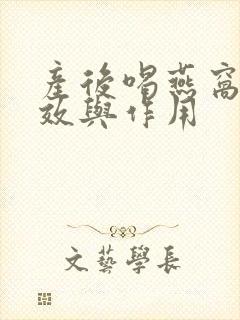 產後喝燕窩
效與作用
文藝學長